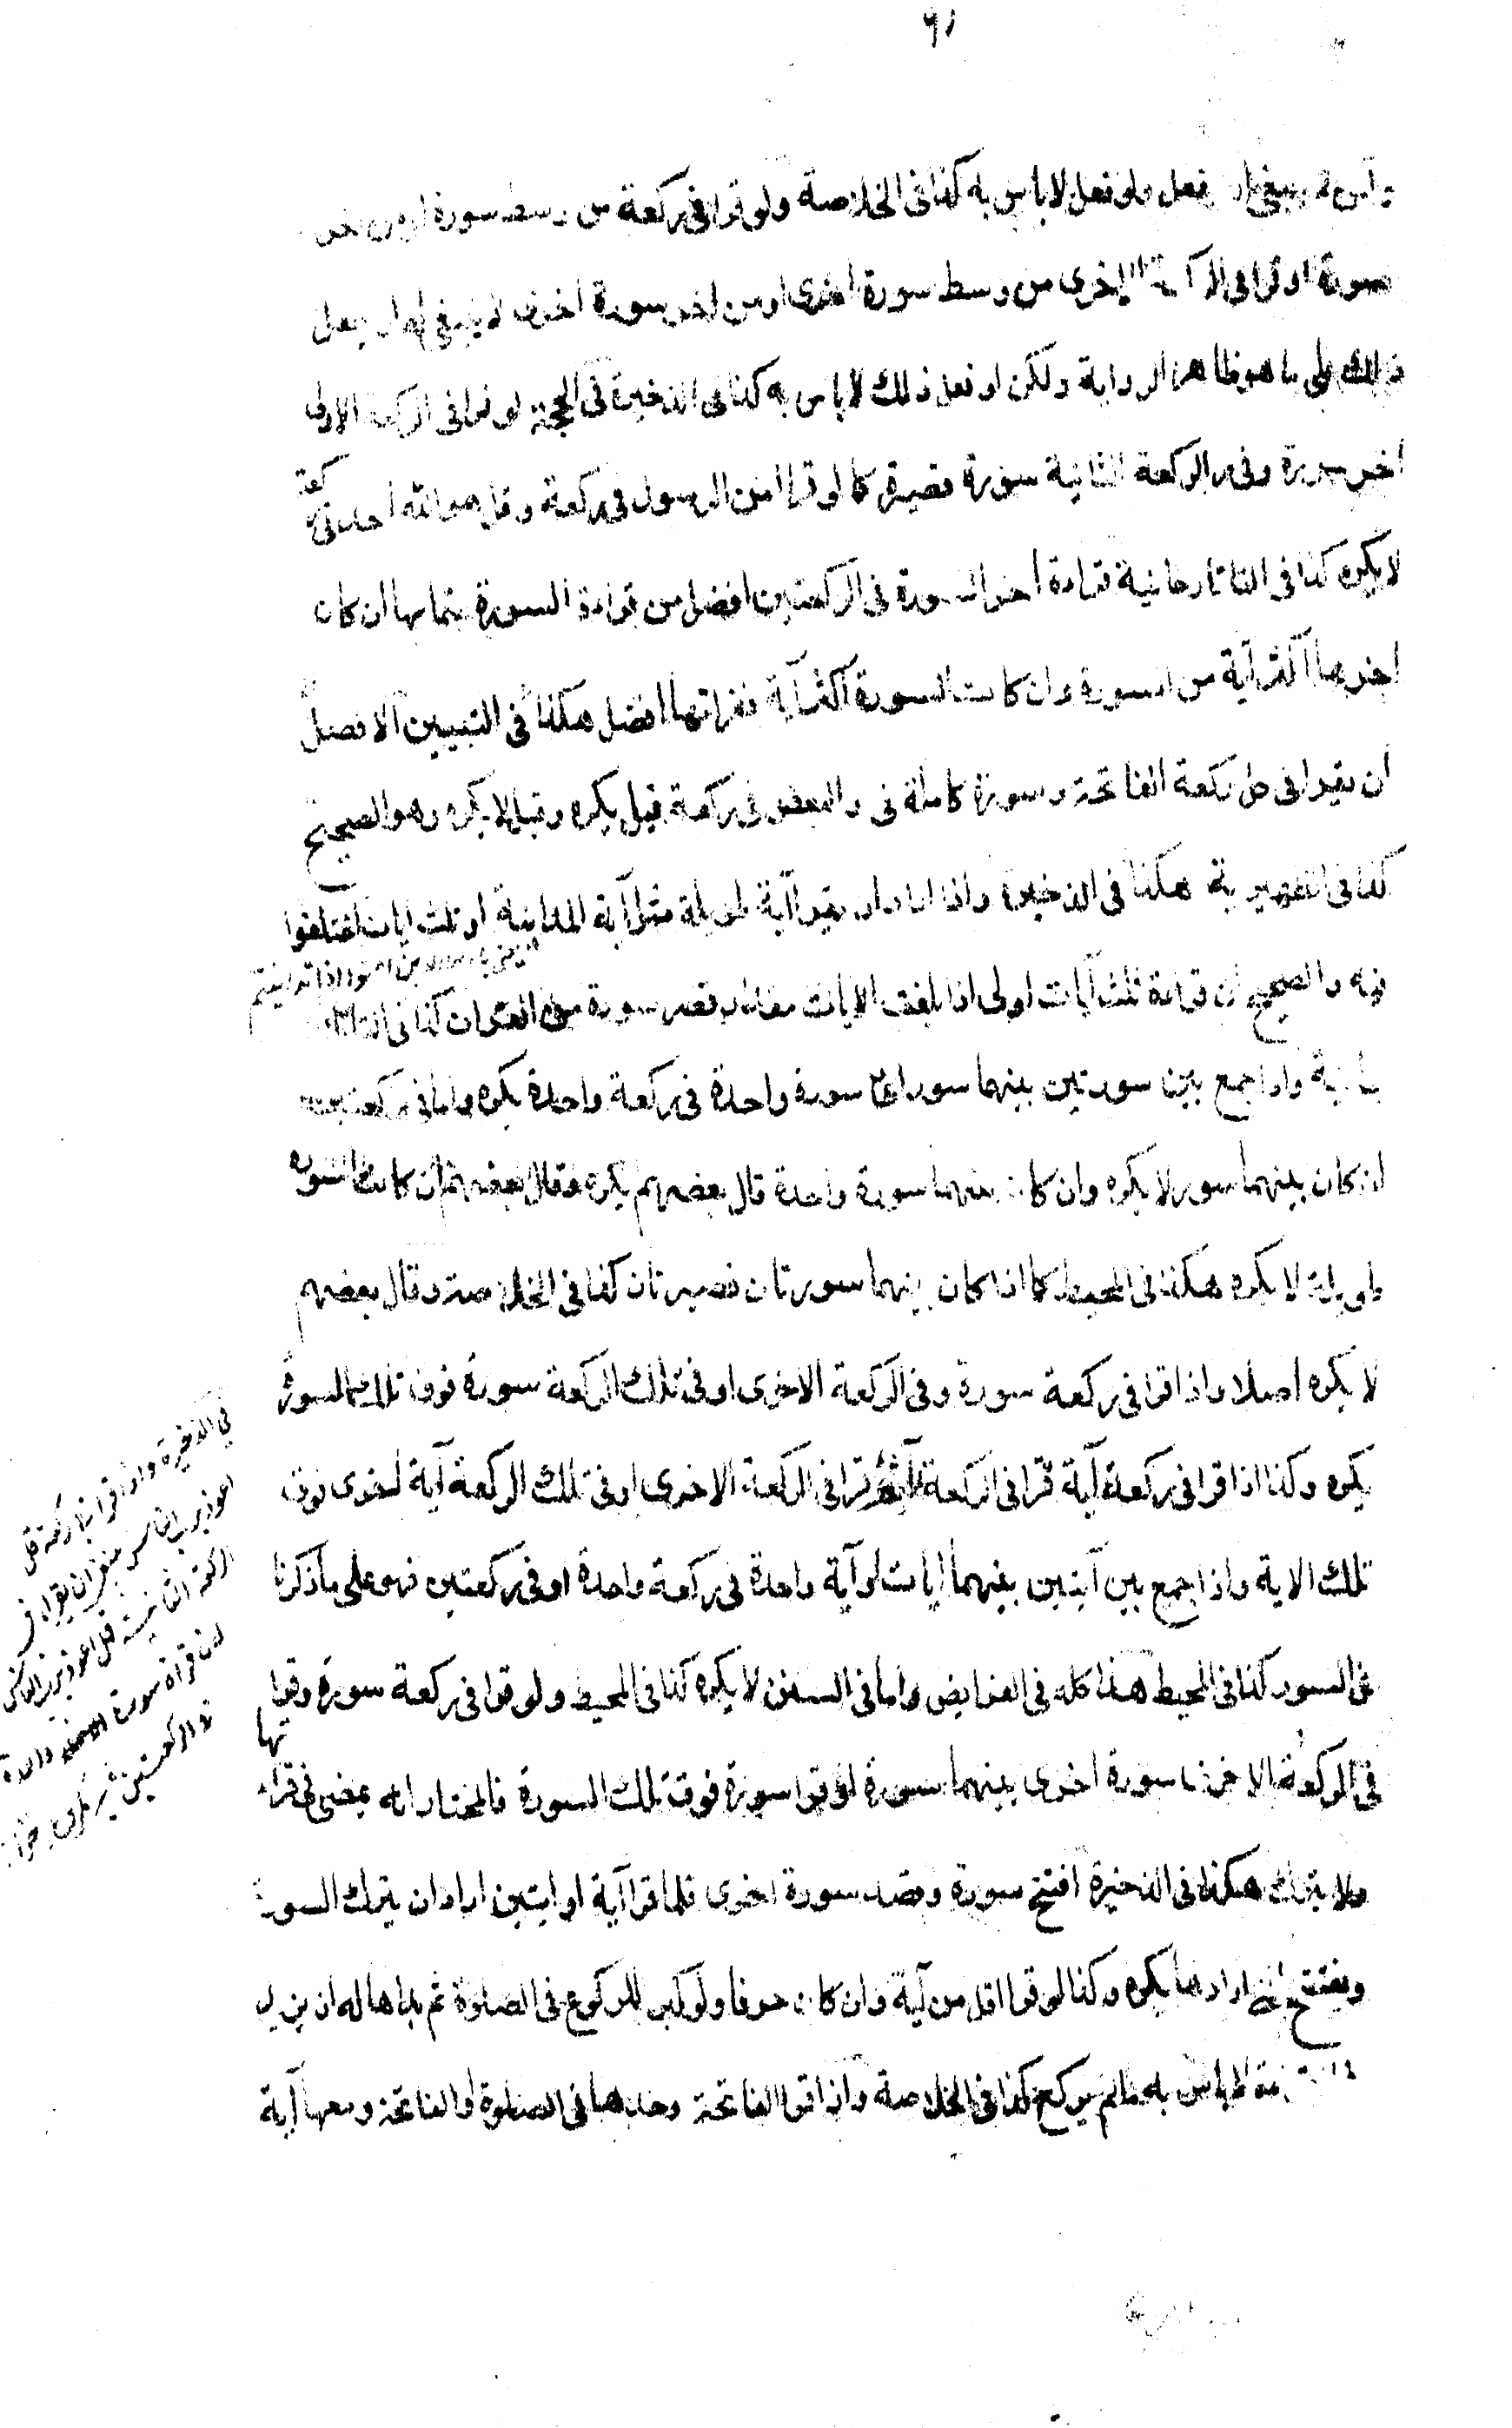 ٦١
ولكن لا ينبغي ان يفعل ولو فعل لا باس به كذا فى الخلاصة ولو قرا فى ركعة من وسط سورة او من اخر
سورة او قرا فى الركعة الاخرى من وسط سورة اخرى او من اخر سورة اخرى لا ينبغي له ان يفعل
ذلك على ما هو ظاهر الرواية ولكن لو فعل ذلك لا باس به كذا فى الذخيرة فى الحجة لو قرا فى الركعة الاولى
اخر سورة وفى الركعة الثانية سورة قصيرة كما لو قرا امن الرسول فى ركعة وقل هو الله احد فى ركعة
لا يكره كذا فى التاتارخانية قراءة اخر السورة فى الركعتين افضل من قراءة السورة بتمامها ان كان
اخرها اكثر آية من السورة وان كانت السورة اكثر آية فقراتها افضل هكذا فى التبيين الافضل
ان يقرا فى كل ركعة الفاتحة وسورة كاملة فى والبعض فى ركعة قيل يكره وقيل لا يكره وهو الصحيح
كذا فى الظهيرية هكذا فى الذخيرة واذا اراد ان يقرا آية طويلة مثل آية المداينة او ثلث ايات اختلفوا
اذا تداينتم
فيه والصحيح ان قراءة ثلث آيات اولى اذا بلغت الايات مقدار قصر سورة من القران كذا فى التاتار
خانية واذا جمع بين سورتين بينهما سور او سورة واحدة فى ركعة واحدة يكره واما فى ركعتين
ان كان بينهما سور لا يكره وان كان بينهما سورة واحدة قال بعضهم يكره وقال بعضهم ان كانت السورة
طويلة لا يكره هكذا فى المحيط كما اذا كان بينهما سورتان قصيرتان كذا فى الخلاصة وقال بعضهم
لا يكره اصلا واذا قرا فى ركعة سورة وفى الركعة الاخرى او فى تلك الركعة سورة فوق تلك السورة
يكره وكذا اذا قرا فى ركعة آية قرا فى الركعة ثم قرا فى الركعة الاخرى او فى تلك الركعة آية اخرى فوق
تلك الاية واذا جمع بين آيتين بينهما ايات او آية واحدة فى ركعة واحدة او فى ركعتين فهو على ما ذكرنا
فى السور كذا فى المحيط هذا كله فى الفرايض واما فى السنن لا يكره كذا فى المحيط ولو قرا فى ركعة سورة وقرا
فى الركعة الاخرى سورة اخرى بينهما سورة او قرا سورة فوق تلك السورة فالمختار انه يمضى فى قراءتها
ولا يترك هكذا فى الذخيرة افتتح سورة وقصد سورة اخرى فلما قرا آية او ايتين اراد ان يترك السورة
ويفتتح التى ارادها يكره وكذا لو قرا اقل من آية وان كان حرفا ولو كبر للركوع فى الصلوة ثم بدا له ان يزيد
لا باس به ما لم يركع كذا فى الخلاصة واذا قرا الفاتحة وحدها فى الصلوة او الفاتحة ومعها آية
في الذخيرة واذا قرا في ركعة قل
اعوذ برب الناس ينبغي ان يقرا في
الركعة الثانية قل اعوذ برب الناس
لان قراءة سورة واحدة
في الركعتين غير مكروه